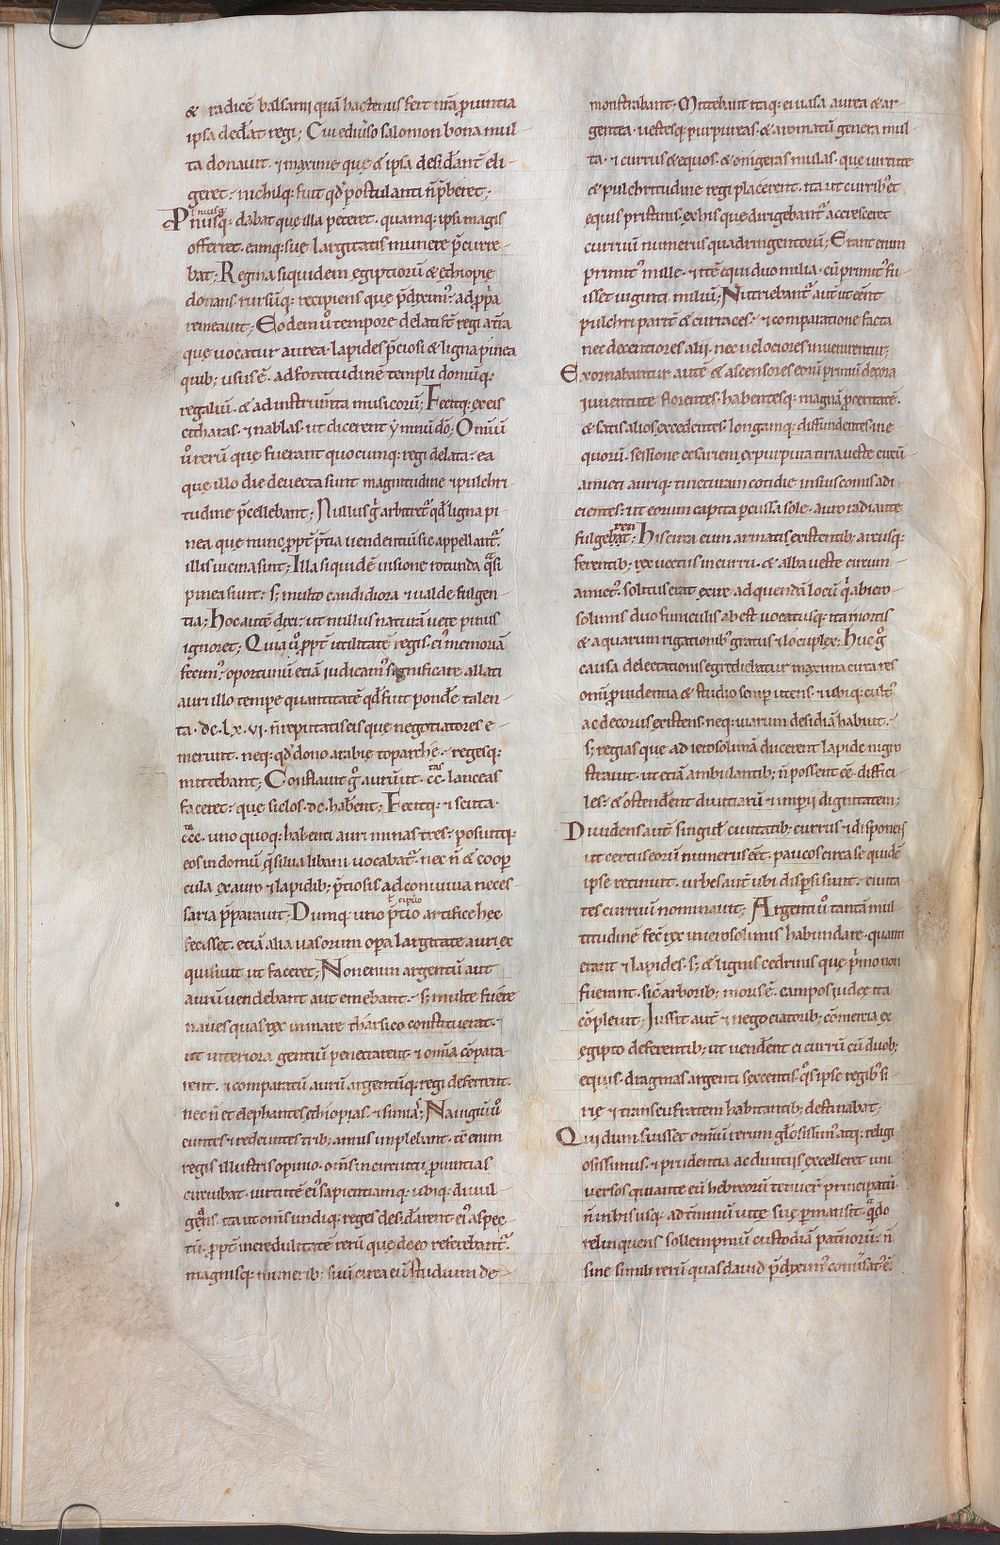 & radicē balsami quā hactenus fert nr̄a ꝓuintia
ipsa ded̄at regi; Cui ediũso salomon bona mul
ta donauit · & maxime quę & ipsa desid̄ant̄ eli-
geret · nichilq: fuit qđ postulanti ñ p̄beret ·
Priusq: dabat quę illa peteret · quamq: ipsi magis
offerret · eamq: suę largitatis munere p̄curre-
bat; Regina siquidem egiptiorū & ęthiopię
donans rursūq: recipiens quę p̄diximꝰ · ad ꝓp̄a
remeauit; Eodem ũ tempore delati st̄ regi
quę uocatur aurea · lapides p̄ciosi & ligna pinea
quib; usus ē · ad fortitudinē templi domūq:
regaliū · & ad instrum̄ta musicorū; Fecitq: ex eis
citharas · & nablas · ut dicerent ẏmnū dō; Omiū
ũ rerū quę fuerant quocumq: regi delata · ea
quę illo die deuecta sunt magnitudine & pulchri
tudine p̄cellebant; Nullus g̊ arbitret̄ qđ ligna pi
nea quę nunc ꝓpt̄ p̄tia uendentiū sic appellant̄ ·
illis uicina sint; Illa siquidē uisione rotunda q̄si
pinea fiunt · s; multo candidiora & ualde fulgen-
tia; Hoc autē dixi · ut nullus naturā uerę pinus
ignoret; Quia ũ ꝓpt̄ utilitatē regis · eiꝰ memoriā
fecimꝰ · oportunū etiā iudicamꝰ significare allati
auri illo tempore quantitatē qđ fuit pond̄e talen
ta · dc · lx · vi · ñ reputatis eis quę negotiatores e-
merunt · neq: qđ dono arabię toparchę · regesq:
mittebant; Conflauit g̊ aurū ut · cc · lanceas
faceret · quę siclos · dc · hab̄ent; Fecitq: & scuta ·
ccc · uno quoq: habenti auri minas tres · posuitq:
eos in domū q̄ silua libani uocabat̄ · nec ñ & cooꝑ
cula ex auro & lapidib; p̄tiosis ad conuiuia neces-
saria p̄parauit · Dumq: uno p̄tio artifice hęc
fecisset · etiā alia uasorum oꝑa largitate auri ex
quisiuit ut faceret; Non enim argentū aut
aurū uendebant aut emebant · s; multę fuere
naues quas rex in mare tharsico constituerat ·
ut ulteriora gentiū penetrarent · & omīa cōpara-
rent · & comparatū aurū argentūq: regi deferrent ·
nec ñ et elephantes ęthiopias · & simias; Nauigiū ũ
euntes & redeuntes trib; annis implebant · tē enim
regis illustris opinio · om̄s in circuitu ꝓuintias
circuibat · uirtutē eiꝰ sapientiamq: ubiq: diuul
gans · ita ut om̄s undiq: reges desid̄arent eiꝰ aspec-
tū · ꝓpt̄ incredulitatē rerū quę de eo referebant̄ ·
magnisq: munerib; suū circa eū studium de-
monstrabant; Mittebant itaq: ei uasa aurea & ar-
gentea · uestesq: purpureas · & aromatū genera mul-
ta · & currus & equos · & onigeras mulas · quę uirtute
& pulchritudine regi placerent · ita ut currib; et
equis pristinis · ex his quę dirigebant̄ accresceret
curruū numerus quadringentorū; Erant enim
primitꝰ mille · & itē equi duo milia · cū primitꝰ fu-
isset uiginti miliū; Nutriebant̄ aut̄ ut ēēnt
pulchri parit̄ & curraces · & comparatione facta
nec decentiores alii · nec uelociores inuenirentur;
Exornabantur autē & ascensores eorū primū decora
iuuentute florentes · habentesq: magnā ꝓceritatē ·
& satis alios excedentes · longamq: diffundentes in e-
quorū · sessione cesariem ex purpura tiria ueste circū-
amicti auriq: tincturam cotidie in suis comis adi-
cientes · ut eorum capita percussa sole · auro radiante
fulgebat; His circa eum armatis existentib; arcusq:
ferentib; rex uectus in curru · & alba ueste circum-
amictꝰ · solitus erat exire ad quendā locū q̄ ab iero-
solimis duo funiculis abest uocatusq: ita mortis
& aquarum rigationib; gratus & locuplex; Huc g̊
causa delectationis egrediebatur maxima circa res
om̄s ꝓuidentia & studio semꝑ utens · & ubiq: cultꝰ
ac decorus existens · neq: uiarum desidiā habuit ·
s; regias quę ad ierosolimā ducerent lapide nigro
strauit · ut etiā ambulantib; ñ possent ēē diffici-
les · & ostend̄ent diuitiarū & imperii dignitatem;
Diuidens aut̄ singul̄ ciuitatib; currus & disponens
ut certus eorū numerus ēēt · paucos circa se quidē
ipse retinuit · urbes aut̄ ubi disꝑsi sunt · ciuita-
tes curruum nominauit; Argenti ũ tantam mul-
titudinē fec̄ rex in ierosolimis habundare · quanti
erant & lapides · s; & lignis cedrinis quę p̄mo non
fuerant · sic̄ arborib; moris ē · campos iudeę ita
cōpleuit; Iussit aut̄ & negociatorib; cōmercia ex
egipto deferentib; ut uend̄ent ei currū cū duob;
equis · dragmas argenti sexcentis · q̄s ipse regib; si-
rię & trans eufratem habitantib; destinabat;
Qui dum fuisset omiū rerum glōsissimꝰ atq: religi
osissimus · & prudentia ac diuitiis excelleret uni
uersos qui ante eū hebreorū tenuer̄ principatū ·
ñ in his usq: ad t̄minū uitę suę ꝑmansit · q̄do
relinquens sollempniū custodiā patriorū · ñ
sine simib rerū quas dauid p̄diximꝰ comisat̄ ē